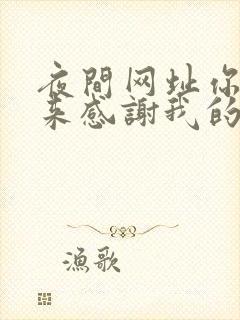 夜間网址你
来感謝我的
漁歌